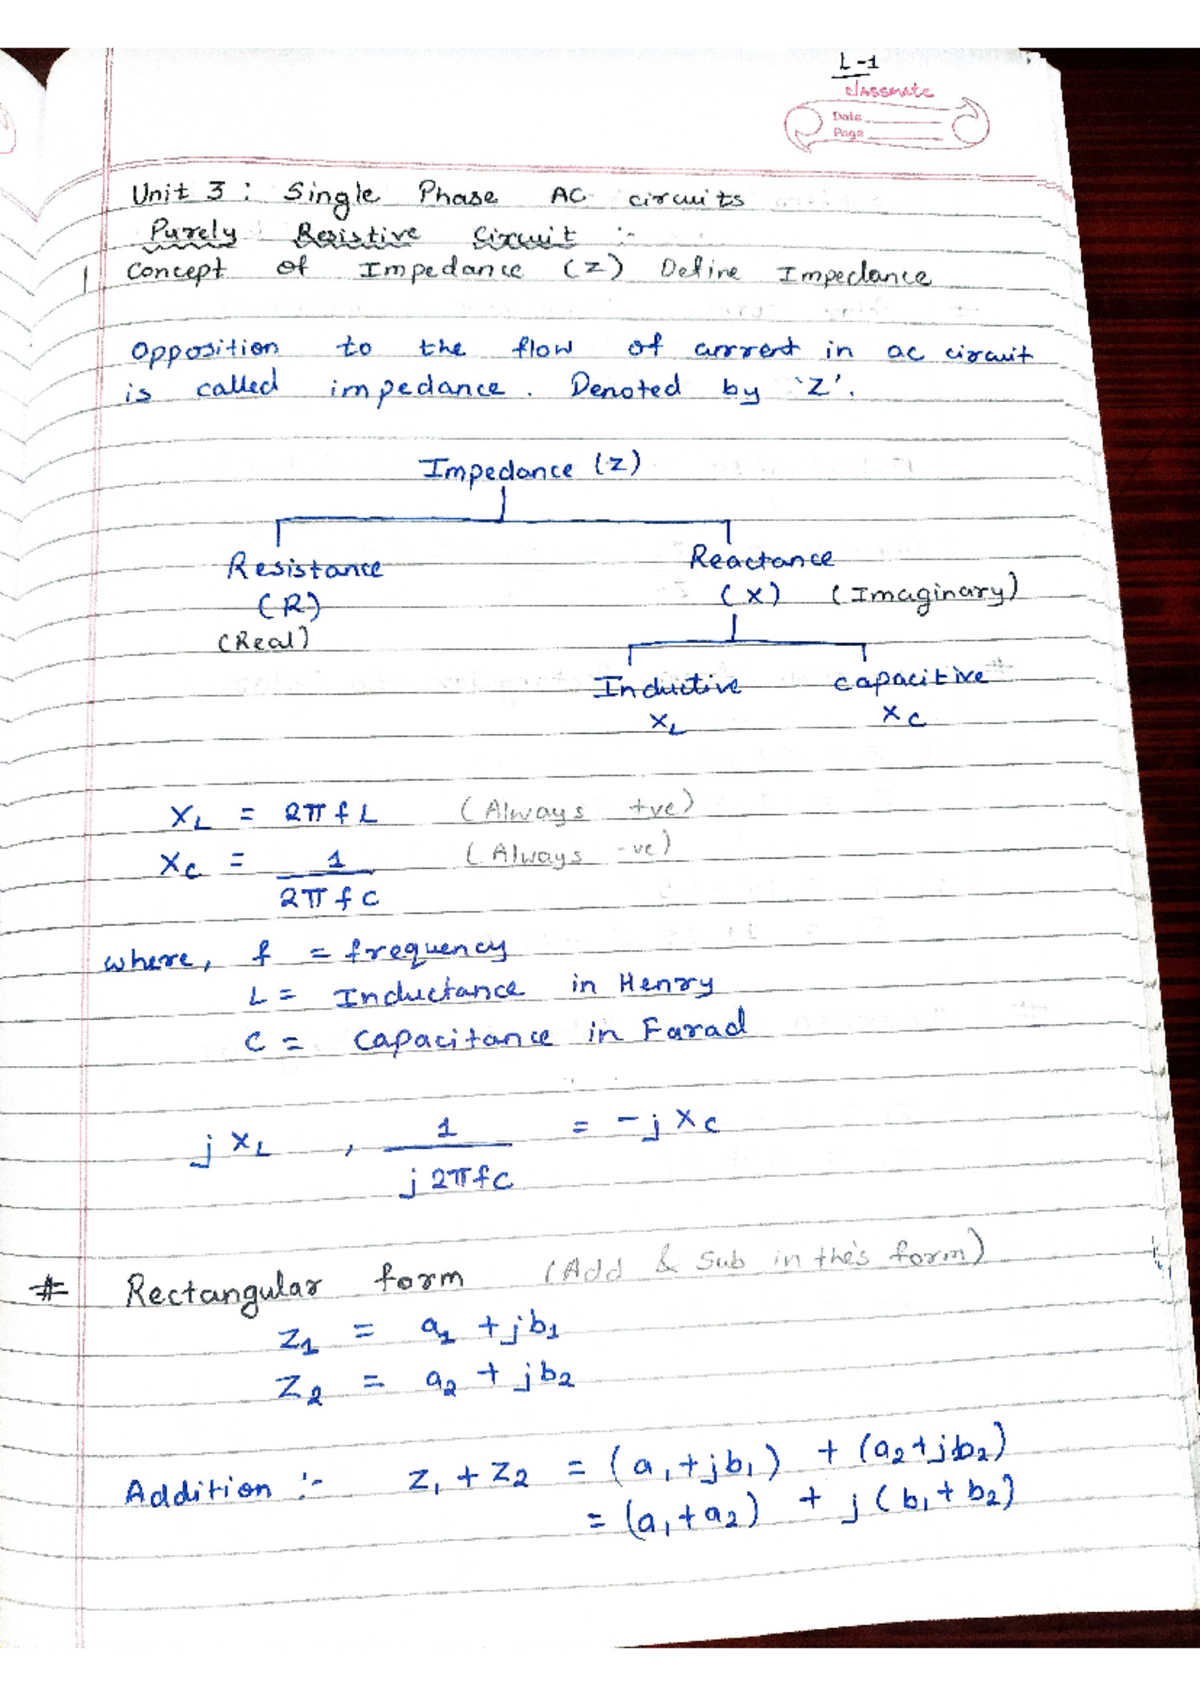 L-1
classmate
Date
Page
Unit 3 : Single Phase AC circuits
Purely Resistive Circuit :-
1 Concept of Impedance (Z) Define Impedance
Opposition to the flow of current in ac circuit
is called impedance. Denoted by 'Z'.
Impedance (Z)
Resistance Reactance
(R) (X) (Imaginary)
(Real)
Inductive capacitive
XL XC
XL = 2πfL (Always +ve)
XC = 1/2πfC (Always -ve)
where, f = frequency
L = Inductance in Henry
C = Capacitance in Farad
jXL , 1/j2πfC = -jXC
# Rectangular form (Add & Sub in the's form)
Z1 = a1 + jb1
Z2 = a2 + jb2
Addition :- Z1 + Z2 = (a1+jb1) + (a2+jb2)
= (a1+a2) + j(b1+b2)